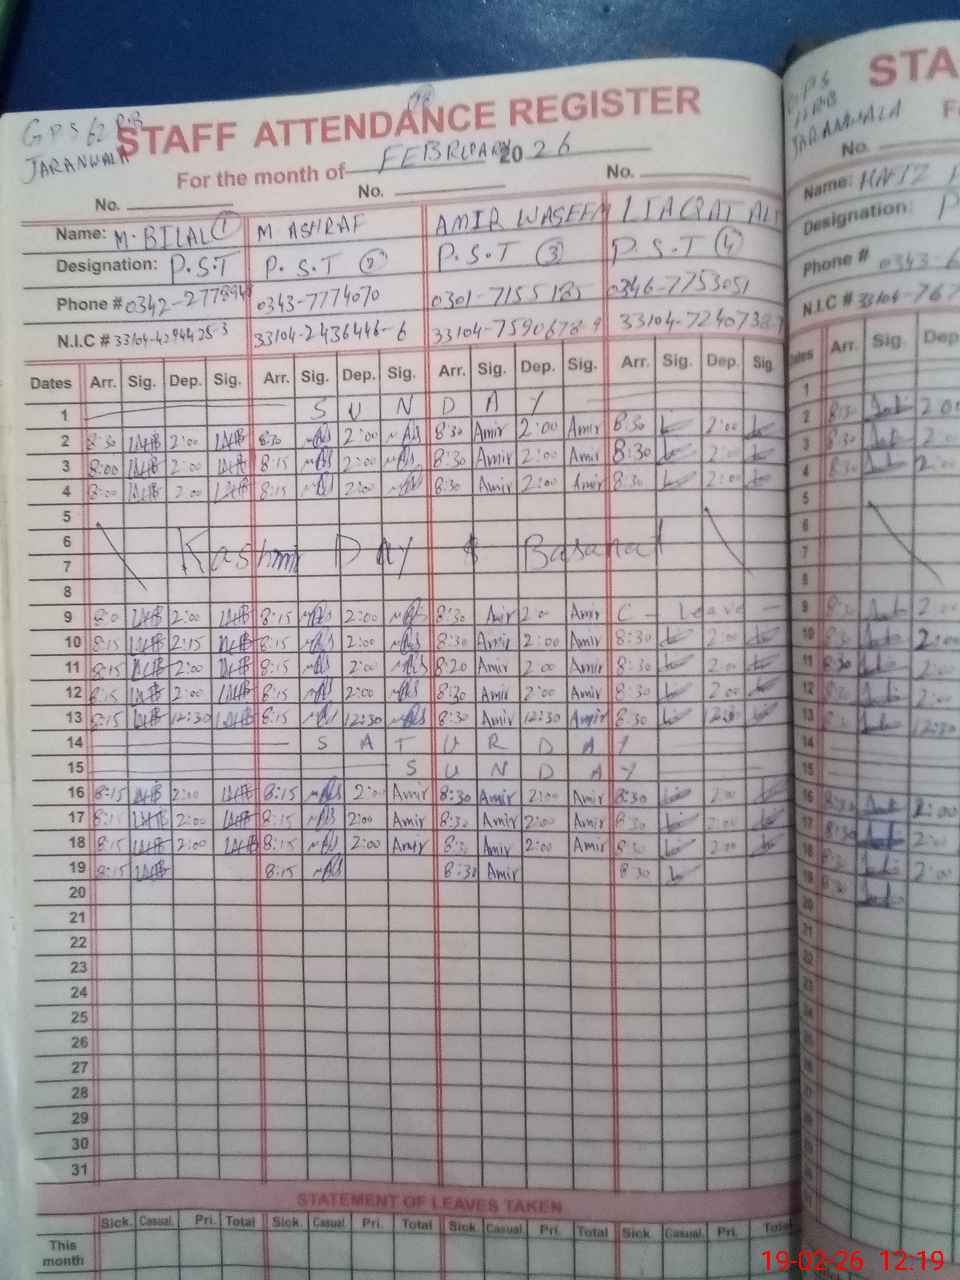 GPS 62 RB
JARANWALA
STAFF ATTENDANCE REGISTER
For the month of FEBRUARY 2026
No. No. No.
Name: M. BILAL 1 M ASHRAF AMIR WASEEM LIAQAT ALI
Designation: P.S.T P.S.T 2 P.S.T 3 P.S.T 4
Phone # 0343-7774070 0301-7155185 0346-7753051
N.I.C # 33104-2436446-6 33104-7590678-9
Dates Arr. Sig. Dep. Sig. Arr. Sig. Dep. Sig. Arr. Sig. Dep. Sig. Arr. Sig. Dep. Sig.
1 SUNDAY
2 8:30 2:00 8:30 2:00 8:30 Amir 2:00 Amir 8:30 2:00
3 8:00 2:00 8:15 2:00 8:30 Amir 2:00 Amir 8:30 2:00
4 8:00 2:00 8:15 2:00 8:30 Amir 2:00 Amir 8:30 2:00
5
6 Kashmir DAY & Basanat
7
8
9 8:0 2:00 8:15 2:00 8:30 Amir 2:00 Amir C - Leave -
10 8:15 2:15 8:15 2:00 8:30 Amir 2:00 Amir 8:30 2:00
11 8:15 2:00 8:15 2:00 8:20 Amir 2:00 Amir 8:30 2:00
12 8:15 2:00 8:15 2:00 8:30 Amir 2:00 Amir 8:30 2:00
13 8:15 12:30 8:15 12:30 8:30 Amir 12:30 Amir 8:30 12:30
14 SATURDAY
15 SUNDAY
16 8:15 2:00 8:15 2:00 Amir 8:30 Amir 2:00 Amir 8:30 2:00
17 8:15 2:00 8:15 2:00 Amir 8:30 Amir 2:00 Amir 8:30 2:00
18 8:15 2:00 8:15 2:00 Amir 8:30 Amir 2:00 Amir 8:30 2:00
19 8:15 8:15 8:30 Amir 8:30
20
21
22
23
24
25
26
27
28
29
30
31
STATEMENT OF LEAVES TAKEN
Sick. Casual. Pri. Total Sick. Casual. Pri. Total Sick. Casual. Pri. Total Sick. Casual. Pri. Total
This
month
STA
JARANWALA
No.
Name:
Designation: P
Phone # 0343-6
N.I.C # 33104-767
Dates Arr. Sig. Dep
1
2 8:30 2:00
3 8:30 2:0
4 8:30 2:00
5
6
7
8
9 2:00
10 2:00
11 8:30 2:00
12 2:00
13 12:30
14
15
16 8:30 2:00
17 8:30 2:00
18 8:30 2:00
19 8:30
20
21
22
23
24
25
26
19-02-26 12:19